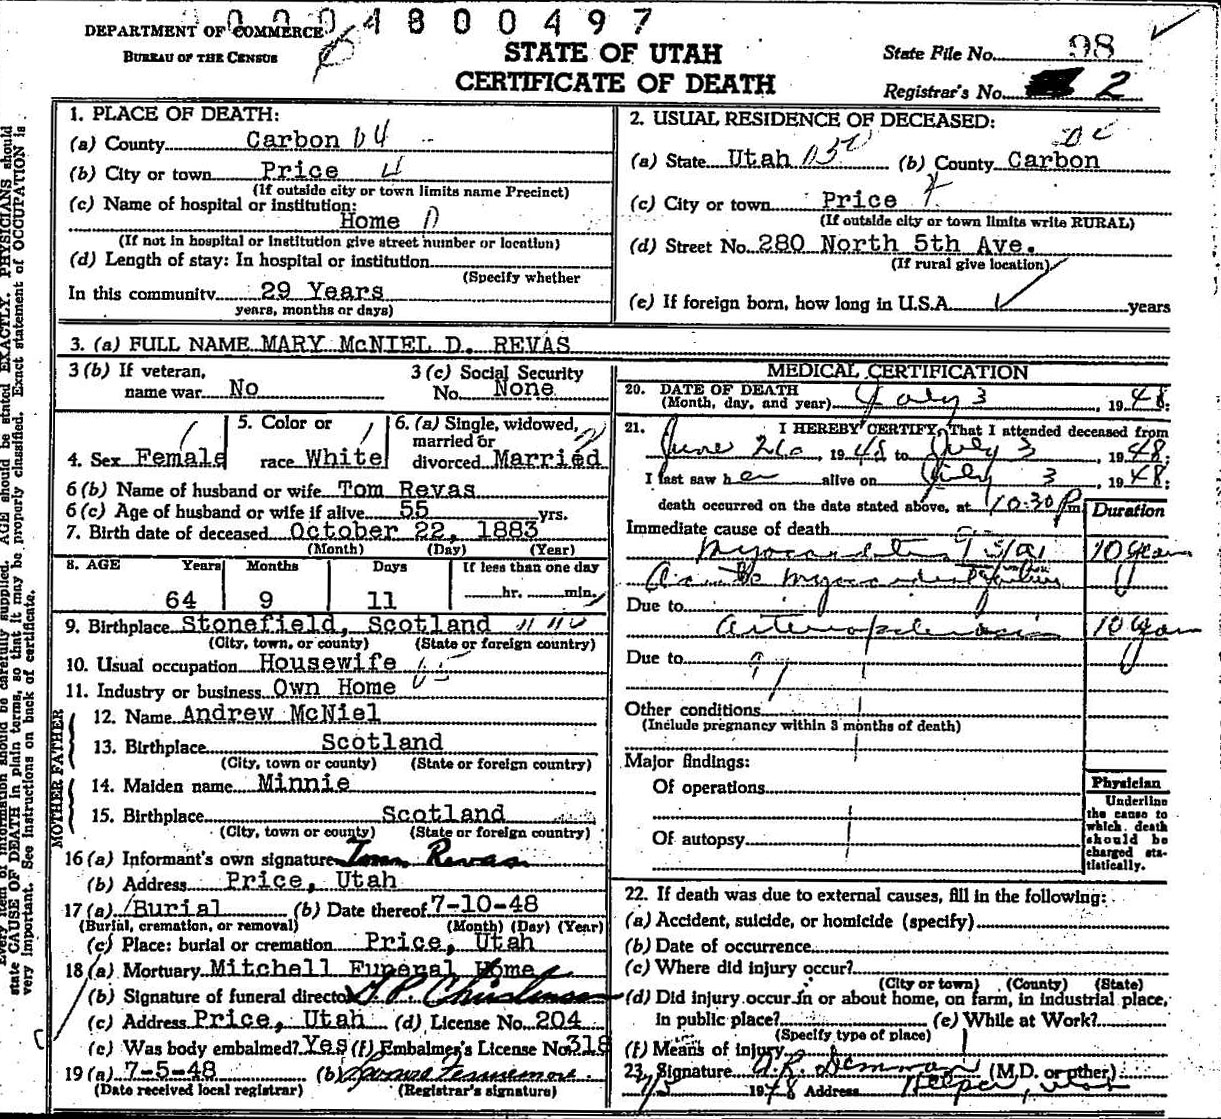 0004800497
DEPARTMENT OF COMMERCE
BUREAU OF THE CENSUS
STATE OF UTAH
CERTIFICATE OF DEATH
State File No. 98
Registrar's No. 2
1. PLACE OF DEATH:
(a) County Carbon 04
(b) City or town Price 4
(If outside city or town limits name Precinct)
(c) Name of hospital or institution:
Home 0
(If not in hospital or institution give street number or location)
(d) Length of stay: In hospital or institution
(Specify whether
In this community 29 Years
years, months or days)
2. USUAL RESIDENCE OF DECEASED:
(a) State Utah (b) County Carbon
(c) City or town Price
(If outside city or town limits write RURAL)
(d) Street No. 280 North 5th Ave.
(If rural give location)
(e) If foreign born, how long in U.S.A. years
3. (a) FULL NAME MARY McNIEL D. REVAS
3 (b) If veteran,
name war. No
3 (c) Social Security
No. None
4. Sex Female
5. Color or
race White
6. (a) Single, widowed,
married or
divorced Married
6 (b) Name of husband or wife Tom Revas
6 (c) Age of husband or wife if alive 55 yrs.
7. Birth date of deceased October 22, 1883
(Month) (Day) (Year)
8. AGE Years Months Days If less than one day
64 9 11 hr. min.
9. Birthplace Stonefield, Scotland
(City, town, or county) (State or foreign country)
10. Usual occupation Housewife
11. Industry or business Own Home
FATHER
12. Name Andrew McNiel
13. Birthplace Scotland
(City, town or county) (State or foreign country)
MOTHER
14. Maiden name Minnie
15. Birthplace Scotland
(City, town or county) (State or foreign country)
16 (a) Informant's own signature Tom Revas
(b) Address Price, Utah
17 (a) Burial (b) Date thereof 7-10-48
(Burial, cremation, or removal) (Month) (Day) (Year)
(c) Place: burial or cremation Price, Utah
18 (a) Mortuary Mitchell Funeral Home
(b) Signature of funeral director
(c) Address Price, Utah (d) License No. 204
(e) Was body embalmed? Yes (f) Embalmer's License No. 318
19 (a) 7-5-48 (b)
(Date received local registrar) (Registrar's signature)
MEDICAL CERTIFICATION
20. DATE OF DEATH
(Month, day, and year) July 3, 1948.
21. I HEREBY CERTIFY, That I attended deceased from
June 26, 1948 to July 3, 1948;
I last saw her alive on July 3, 1948;
death occurred on the date stated above, at 10:30 P m.
Duration
Immediate cause of death
Myocarditis 10 years
Due to
Arteriosclerosis 10 years
Due to
Other conditions
(Include pregnancy within 3 months of death)
Major findings:
Of operations
Of autopsy
Physician
Underline
the cause to
which death
should be
charged sta-
tistically.
22. If death was due to external causes, fill in the following:
(a) Accident, suicide, or homicide (specify)
(b) Date of occurrence
(c) Where did injury occur?
(City or town) (County) (State)
(d) Did injury occur in or about home, on farm, in industrial place,
in public place? (e) While at Work?
(Specify type of place)
(f) Means of injury
23. Signature (M.D. or other)
7/5 1948 Address Helper, Utah
state CAUSE OF DEATH in plain terms, so that it may be properly classified. Exact statement of OCCUPATION is
very important. See instructions on back of certificate.